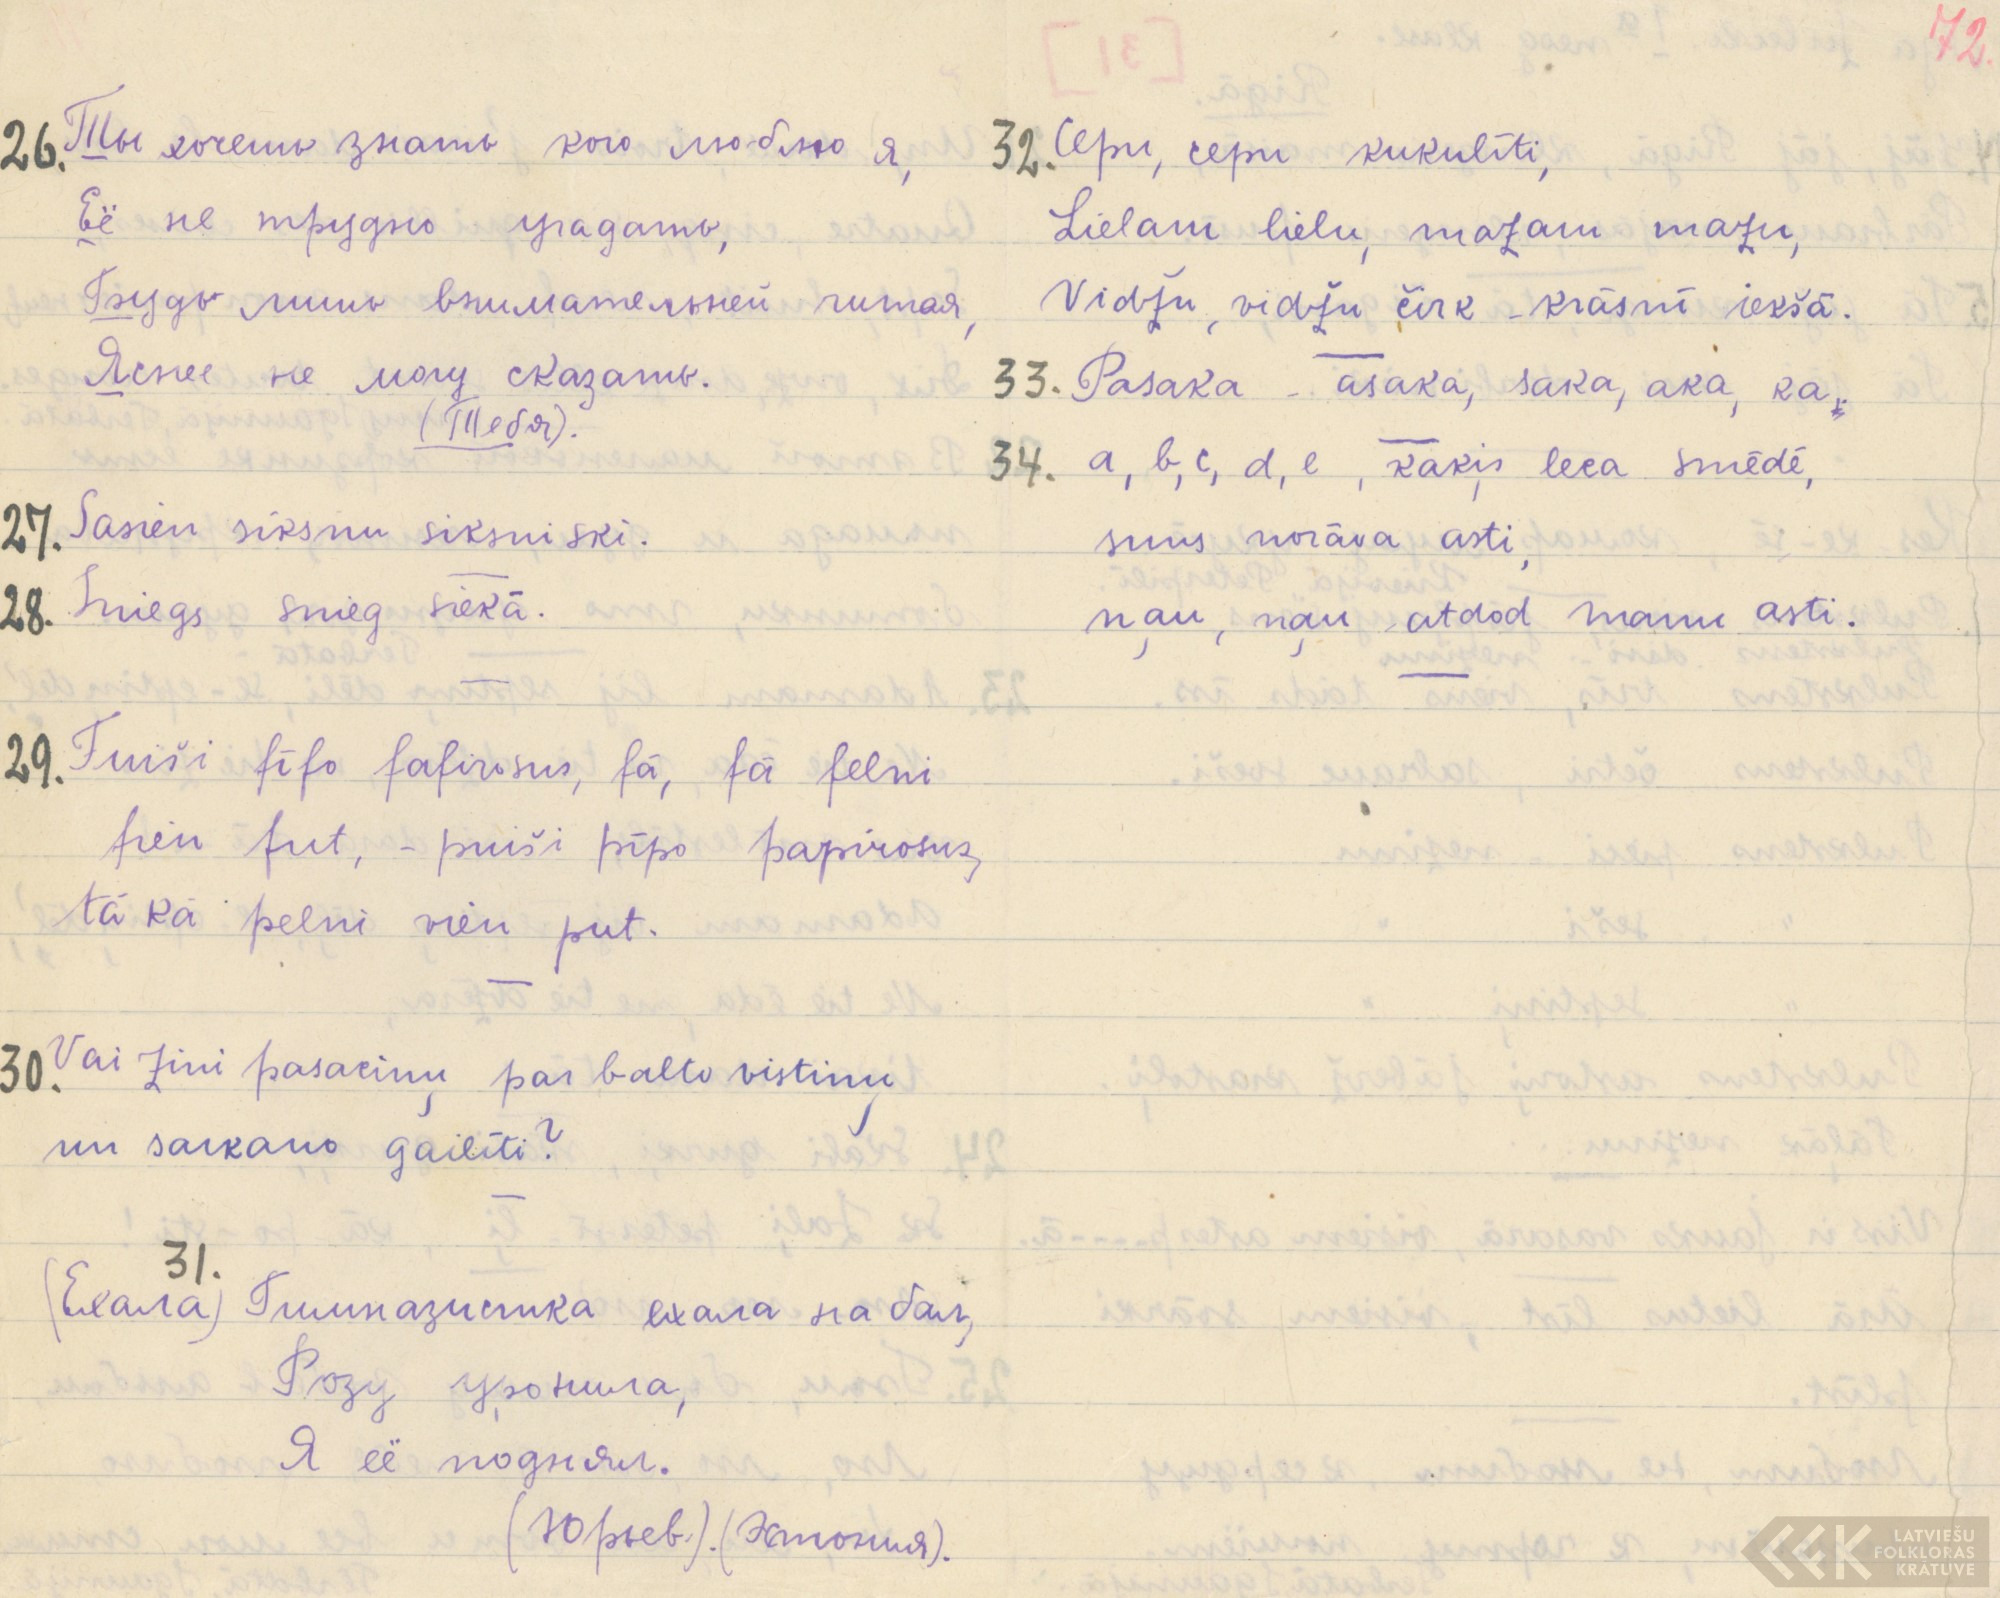 72.
26. Ты хочешь знать кого люблю я,
Её не трудно угадать,
Будь лишь внимательней читая,
Яснее не могу сказать.
(Тебя).
27. Sasien siksnu siksniski.
28. Sniegs snieg siekā.
29. Fuiši fīfo fafirosus, fā, fā felni
fien fut, - puiši pīpo papirosus,
tā kā pelni vien put.
30. Vai zini pasaciņu par balto vistiņu
un sarkano gailīti?
31.
(Ехала) Гимназистка ехала на бал,
Розу уронила,
Я её поднял.
(Юрьев). (Эстония).
32. Cepu, cepu kukulīti,
Lielam lielu, mazam mazu,
Vidžu, vidžu čirk - krāsnī iekšā.
33. Pasaka - asaka, saka, aka, ka,
34. a, b, c, d, e, kaķis leca smēdē,
suns norāva asti,
ņau, ņau - atdod manu asti.
LATVIEŠU
FOLKLORAS
KRĀTUVE